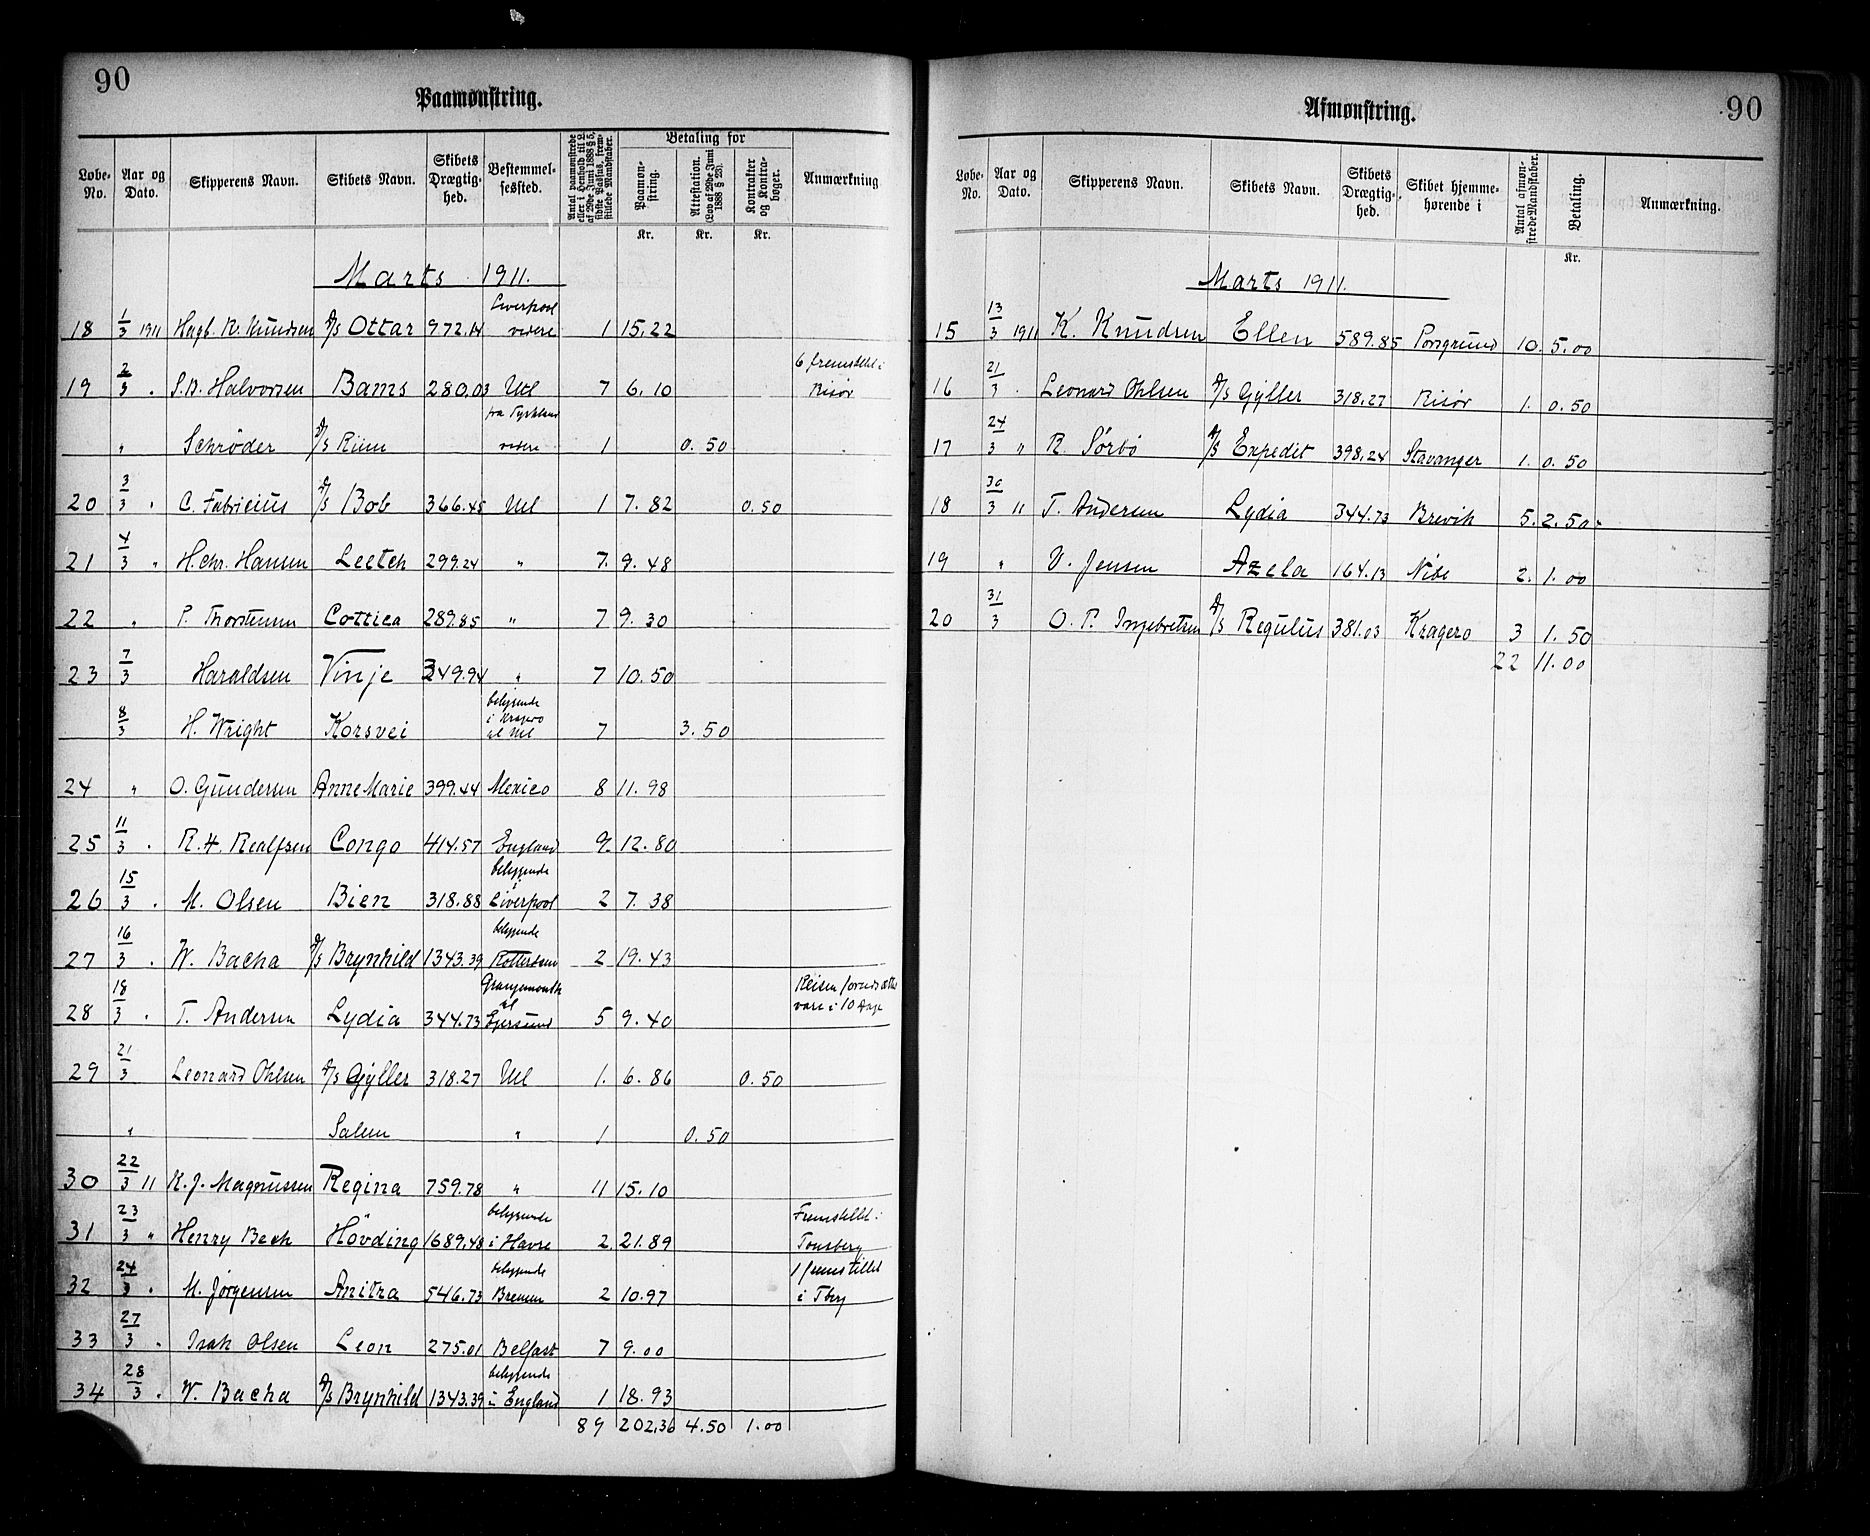 90
Paamønstring.
Løbe-No. Aar og Dato. Skipperens Navn. Skibets Navn. Skibets Drægtighed. Bestemmelsessted. Antal paamønstrede eller i Henhold til § 2 af 29de Juni 1888 § 5, sidste Passus, fremstillede Mandskaber. Betaling for Paamønstring. Attestation. (Lov af 29de Juni 1888 § 23). Kontrakter og Kontrabøger. Anmærkning
Kr. Kr. Kr.
Marts 1911.
18 1/3 1911 Hagb. R. Knudsen D/S Ottar 972.14 Liverpool videre 1 15.22
19 2/3 " S. B. Halvorsen Bams 280.03 Utl 7 6.10 6 fremstillet i Risør
" Schrøder D/S Riim fra Tyskland videre 1 0.50
20 3/3 " C. Fabricius D/S Bob 366.45 Utl 1 7.82 0.50
21 4/3 " H. Chr. Hansen Leetch 299.24 " 7. 9.48
22 " P. Thorstensen Cottica 289.85 " 7 9.30
23 7/3 Haraldsen Vinje 349.94 " 7 10.50
8/3 H. Wright Korsvei beliggende i Kragerø til Utl 7 3.50
24 " O. Gundersen Anne Marie 399.44 Mexico 8 11.98
25 11/3 " R. H. Realfsen Congo 414.57 England 9. 12.80
26 15/3 " M. Olsen Bien 318.88 beliggende i Liverpool 2 7.38
27 16/3 " W. Bacha D/S Brynhild 1343.39 beliggende Rotterdam 2 19.43
28 18/3 " T. Andersen Lydia 344.73 Grangemouth til Egersund 5 9.40 Reisen forudsættes vare i 10 Dage
29 21/3 Leonard Ohlsen D/S Gyller 318.27 Utl 1. 6.86 0.50
" Salem " 1 0.50
30 22/3 11 K. J. Magnussen Regina 759.78 " 11 15.10
31 23/3 " Henry Bech Hövding 1689.48 beliggende i Havre 2 21.89 Fremstillet i Tønsberg
32 24/3 " M. Jørgensen Anitra 546.73 beliggende Bremen 2 10.97 1 fremstillet i Tbg
33 27/3 " Isak Olsen Leon 275.01 Belfast 7 9.00
34 28/3 " W. Bacha D/S Brynhild 1343.39 beliggende i England 1 18.93
89 202.36 4.50 1.00
90
Afmønstring.
Løbe-No. Aar og Dato. Skipperens Navn. Skibets Navn. Skibets Drægtighed. Skibet hjemmehørende i Antal afmønstrede Mandskaber. Betaling. Anmærkning.
Kr.
Marts 1911.
15 13/3 1911 K. Knudsen Ellen 589.85 Porsgrund 10. 5.00
16 21/3 " Leonard Ohlsen D/S Gyller 318.27 Risør 1. 0.50
17 24/3 " R. Sørbö D/S Expedit 398.24 Stavanger 1. 0.50
18 30/3 11 T. Andersen Lydia 344.73 Brevik 5. 2.50
19 " V. Jensen Azela 164.13 Nibe 2. 1.00
20 31/3 O. P. Ingebretsen D/S Regulus 381.03 Kragerø 3 1.50
22 11.00